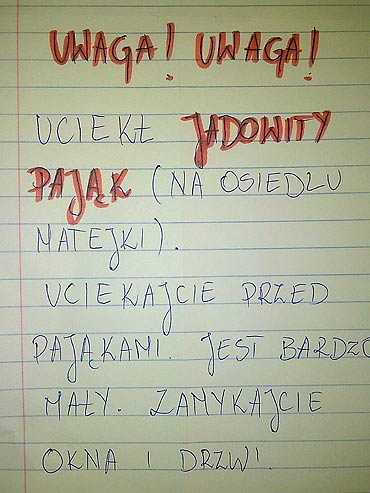 UWAGA! UWAGA!
UCIEKŁ JADOWITY
PAJĄK (NA OSIEDLU
MATEJKI).
UCIEKAJCIE PRZED
PAJĄKAMI. JEST BARDZO
MAŁY. ZAMYKAJCIE
OKNA I DRZWI.